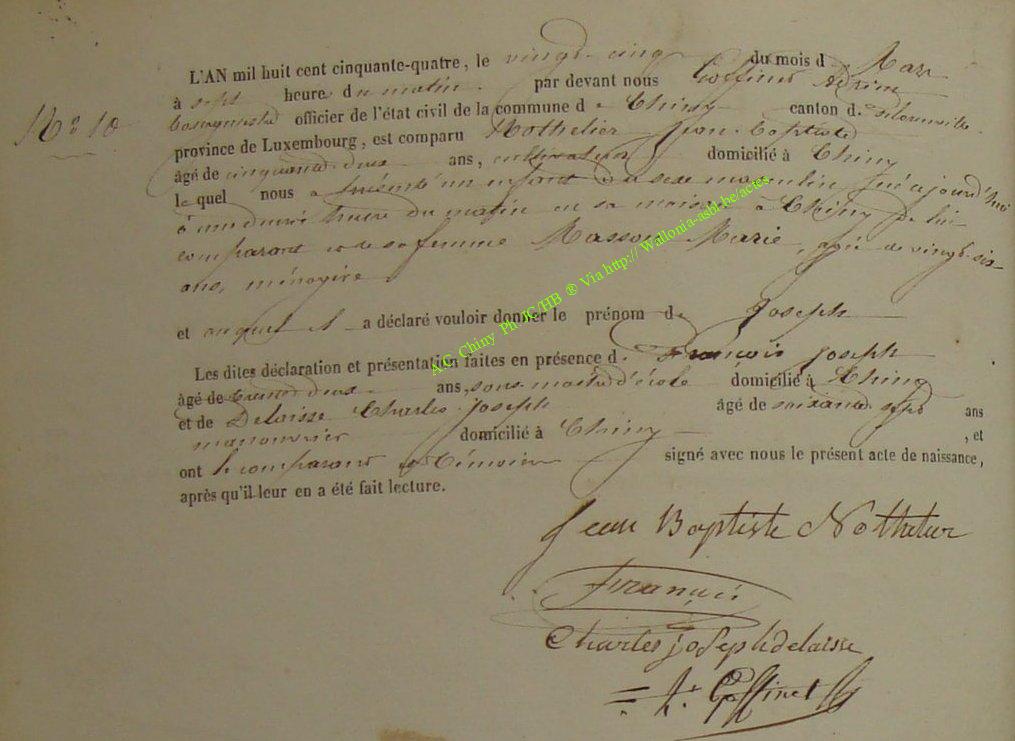 N° 10
L'AN mil huit cent cinquante-quatre, le vingt-cinq du mois d e Mars
à sept heure du matin. par devant nous Goffinet Adrien
Bourgmestre officier de l'état civil de la commune d e Chiny canton d. e Florenville
province de Luxembourg, est comparu Nothelier Jean-Baptiste
âgé de cinquante deux ans, cultivateur domicilié à Chiny
le quel nous a présenté un enfant du sexe masculin né aujourd'hui
à une heure du matin en sa maison à Chiny de lui
comparant et de sa femme Masson Marie, agée de vingt-six
ans, ménagère
et auquel il a déclaré vouloir donner le prénom d e Joseph
Les dites déclaration et présentation faites en présence d. e François Joseph
âgé de trente deux ans, sous-maître d'école domicilié à Chiny
et de Delaisse Charles-Joseph âgé de soixante sept ans
manouvrier domicilié à Chiny , et
ont le comparant et témoins signé avec nous le présent acte de naissance,
après qu'il leur en a été fait lecture.
Jean Baptiste Nothelier
François
Charles joseph delaisse
A. Goffinet
A.G. Chiny Ph JC/HB ® Via http:// Wallonia-asbl.be/actes